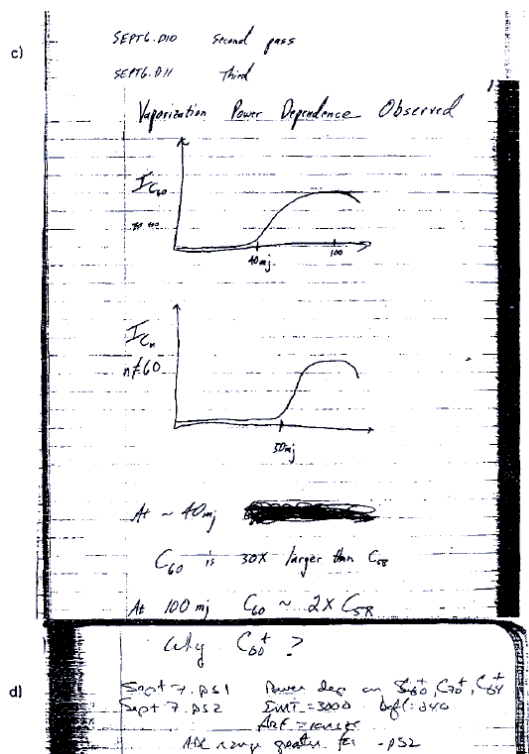 c)
SEPT6.D10 Second pass
SEPT6.D11 Third
Vaporization Power Dependence Observed
I C60
40mj 100
I Cn
n≠60
50mj
At ~ 40mj
C60 is 30X larger than C58
At 100 mj C60 ~ 2X C58
Why C60+ ?
d)
Sept 7. PS1 Power dep on C60+, C70+, C64+
Sept 7. PS2 =3000
range
range PS1 - PS2